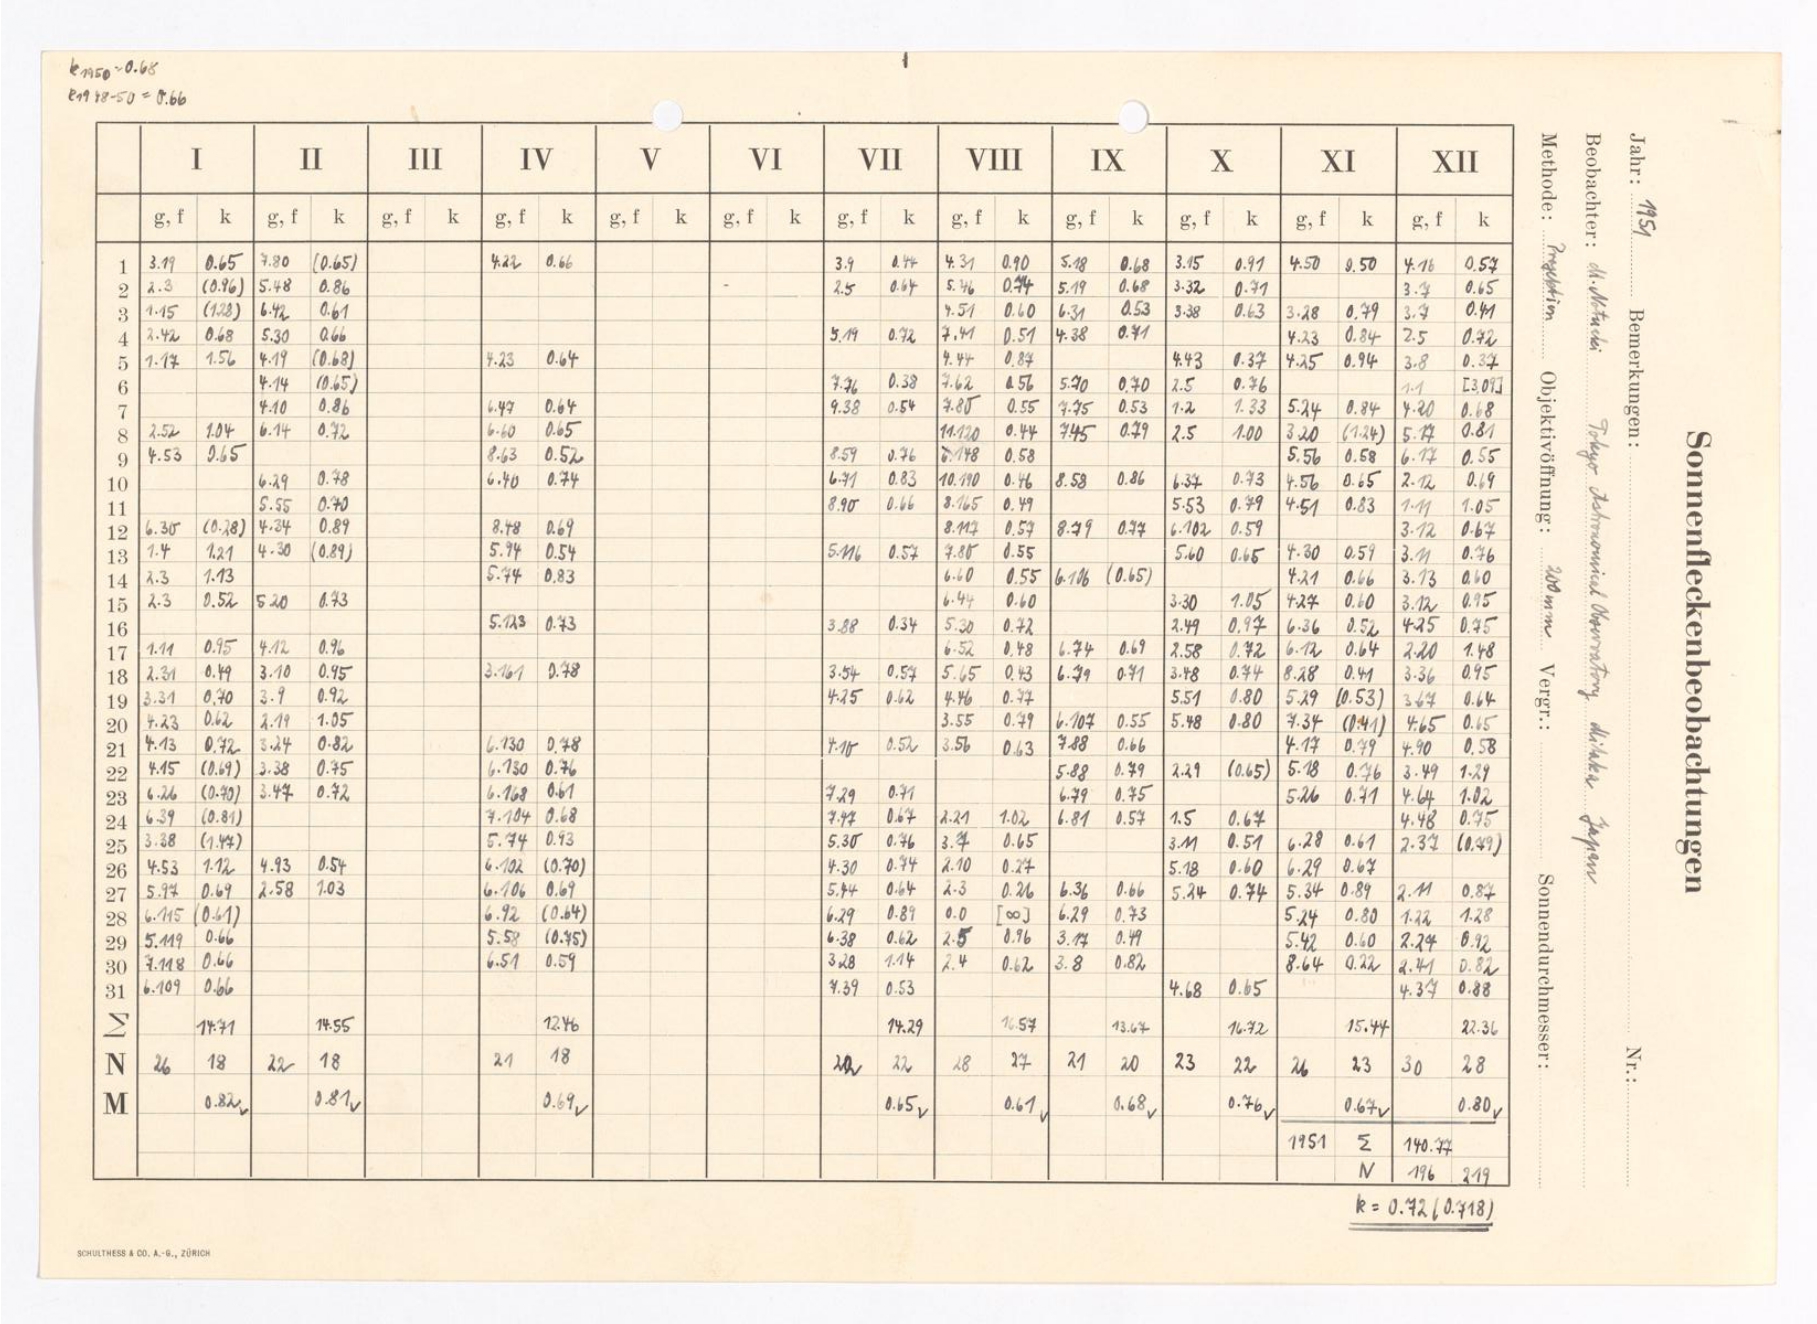 k1950=0.68
k1948-50 = 0.66
Sonnenfleckenbeobachtungen
Jahr: 1951 Bemerkungen: Nr.:
Beobachter: Tokyo Astronomical Observatory Mitaka Japan
Methode: Projektion Objektivöffnung: 200mm Vergr.: Sonnendurchmesser:
I II III IV V VI VII VIII IX X XI XII
g, f k g, f k g, f k g, f k g, f k g, f k g, f k g, f k g, f k g, f k g, f k g, f k
1 3.19 0.65 7.80 (0.65) 4.22 0.66 3.9 0.44 4.31 0.90 5.18 0.68 3.15 0.91 4.50 0.50 4.16 0.57
2 2.3 (0.96) 5.48 0.86 2.5 0.64 5.46 0.74 5.19 0.68 3.32 0.71 3.7 0.65
3 1.15 (1.28) 6.42 0.61 4.51 0.60 6.31 0.53 3.38 0.63 3.28 0.79 3.7 0.41
4 2.42 0.68 5.30 0.66 5.19 0.72 7.41 0.51 4.38 0.71 4.23 0.84 2.5 0.72
5 1.17 1.56 4.19 (0.68) 4.23 0.64 4.44 0.87 4.43 0.37 4.25 0.94 3.8 0.37
6 4.14 (0.65) 7.76 0.38 7.62 0.56 5.70 0.70 2.5 0.76 1.1 [3.09]
7 4.10 0.86 6.47 0.64 9.38 0.54 7.85 0.55 7.75 0.53 1.2 1.33 5.24 0.84 4.20 0.68
8 2.52 1.04 6.14 0.72 6.60 0.65 11.120 0.44 7.45 0.79 2.5 1.00 3.20 (1.24) 5.17 0.81
9 4.53 0.65 8.63 0.52 8.59 0.76 8.148 0.58 5.56 0.58 6.17 0.55
10 6.29 0.78 6.40 0.74 6.71 0.83 10.190 0.46 8.58 0.86 6.37 0.73 4.56 0.65 2.12 0.69
11 5.55 0.70 8.90 0.66 8.165 0.49 5.53 0.79 4.51 0.83 1.11 1.05
12 6.30 (0.28) 4.34 0.89 8.48 0.69 8.117 0.57 8.79 0.77 6.102 0.59 3.12 0.67
13 1.4 1.21 4.30 (0.89) 5.94 0.54 5.116 0.57 7.80 0.55 5.60 0.65 4.30 0.59 3.11 0.76
14 2.3 1.13 5.74 0.83 6.60 0.55 6.106 (0.65) 4.21 0.66 3.13 0.60
15 2.3 0.52 5.20 0.73 6.44 0.60 3.30 1.05 4.27 0.60 3.12 0.95
16 5.123 0.73 3.88 0.34 5.30 0.72 2.49 0.97 6.36 0.52 4.25 0.75
17 1.11 0.95 4.12 0.96 6.52 0.48 6.74 0.69 2.58 0.72 6.12 0.64 2.20 1.48
18 2.31 0.49 3.10 0.95 3.161 0.78 3.54 0.57 5.65 0.43 6.79 0.71 3.48 0.74 8.28 0.41 3.36 0.95
19 3.31 0.70 3.9 0.92 4.25 0.62 4.46 0.77 5.51 0.80 5.29 (0.53) 3.67 0.64
20 4.23 0.62 2.19 1.05 3.55 0.79 6.107 0.55 5.48 0.80 7.34 (0.41) 4.65 0.65
21 4.13 0.72 3.24 0.82 6.130 0.78 4.10 0.52 3.56 0.63 7.88 0.66 4.17 0.79 4.90 0.58
22 4.15 (0.69) 3.38 0.75 6.130 0.76 5.88 0.79 2.29 (0.65) 5.18 0.76 3.49 1.29
23 6.26 (0.70) 3.47 0.72 6.168 0.61 7.29 0.71 6.79 0.75 5.26 0.71 4.64 1.02
24 6.39 (0.81) 7.104 0.68 7.47 0.67 2.21 1.02 6.81 0.57 1.5 0.67 4.48 0.75
25 3.38 (1.47) 5.74 0.93 5.30 0.76 3.7 0.65 3.11 0.51 6.28 0.61 2.37 (0.79)
26 4.53 1.12 4.93 0.54 6.102 (0.70) 4.30 0.74 2.10 0.27 5.18 0.60 6.29 0.67
27 5.97 0.69 2.58 1.03 6.106 0.69 5.44 0.64 2.3 0.26 6.36 0.66 5.24 0.74 5.34 0.89 2.11 0.87
28 6.115 (0.61) 6.92 (0.64) 6.29 0.89 0.0 [∞] 6.29 0.73 5.24 0.80 1.22 1.28
29 5.119 0.66 5.58 (0.75) 6.38 0.62 2.5 0.96 3.17 0.49 5.42 0.60 2.27 0.92
30 7.118 0.66 6.51 0.59 3.28 1.14 2.4 0.62 3.8 0.82 8.64 0.22 2.41 0.82
31 6.109 0.66 7.39 0.53 4.68 0.65 4.37 0.88
Σ 14.71 14.55 12.46 14.29 16.57 13.67 16.72 15.44 22.36
N 26 18 22 18 21 18 22 28 27 21 20 23 22 26 23 30 28
M 0.82✓ 0.81✓ 0.69✓ 0.65✓ 0.61✓ 0.68✓ 0.76✓ 0.67✓ 0.80✓
1951 Σ 140.77
N 196 219
k = 0.72 (0.718)
SCHULTHESS & CO. A.-G., ZÜRICH